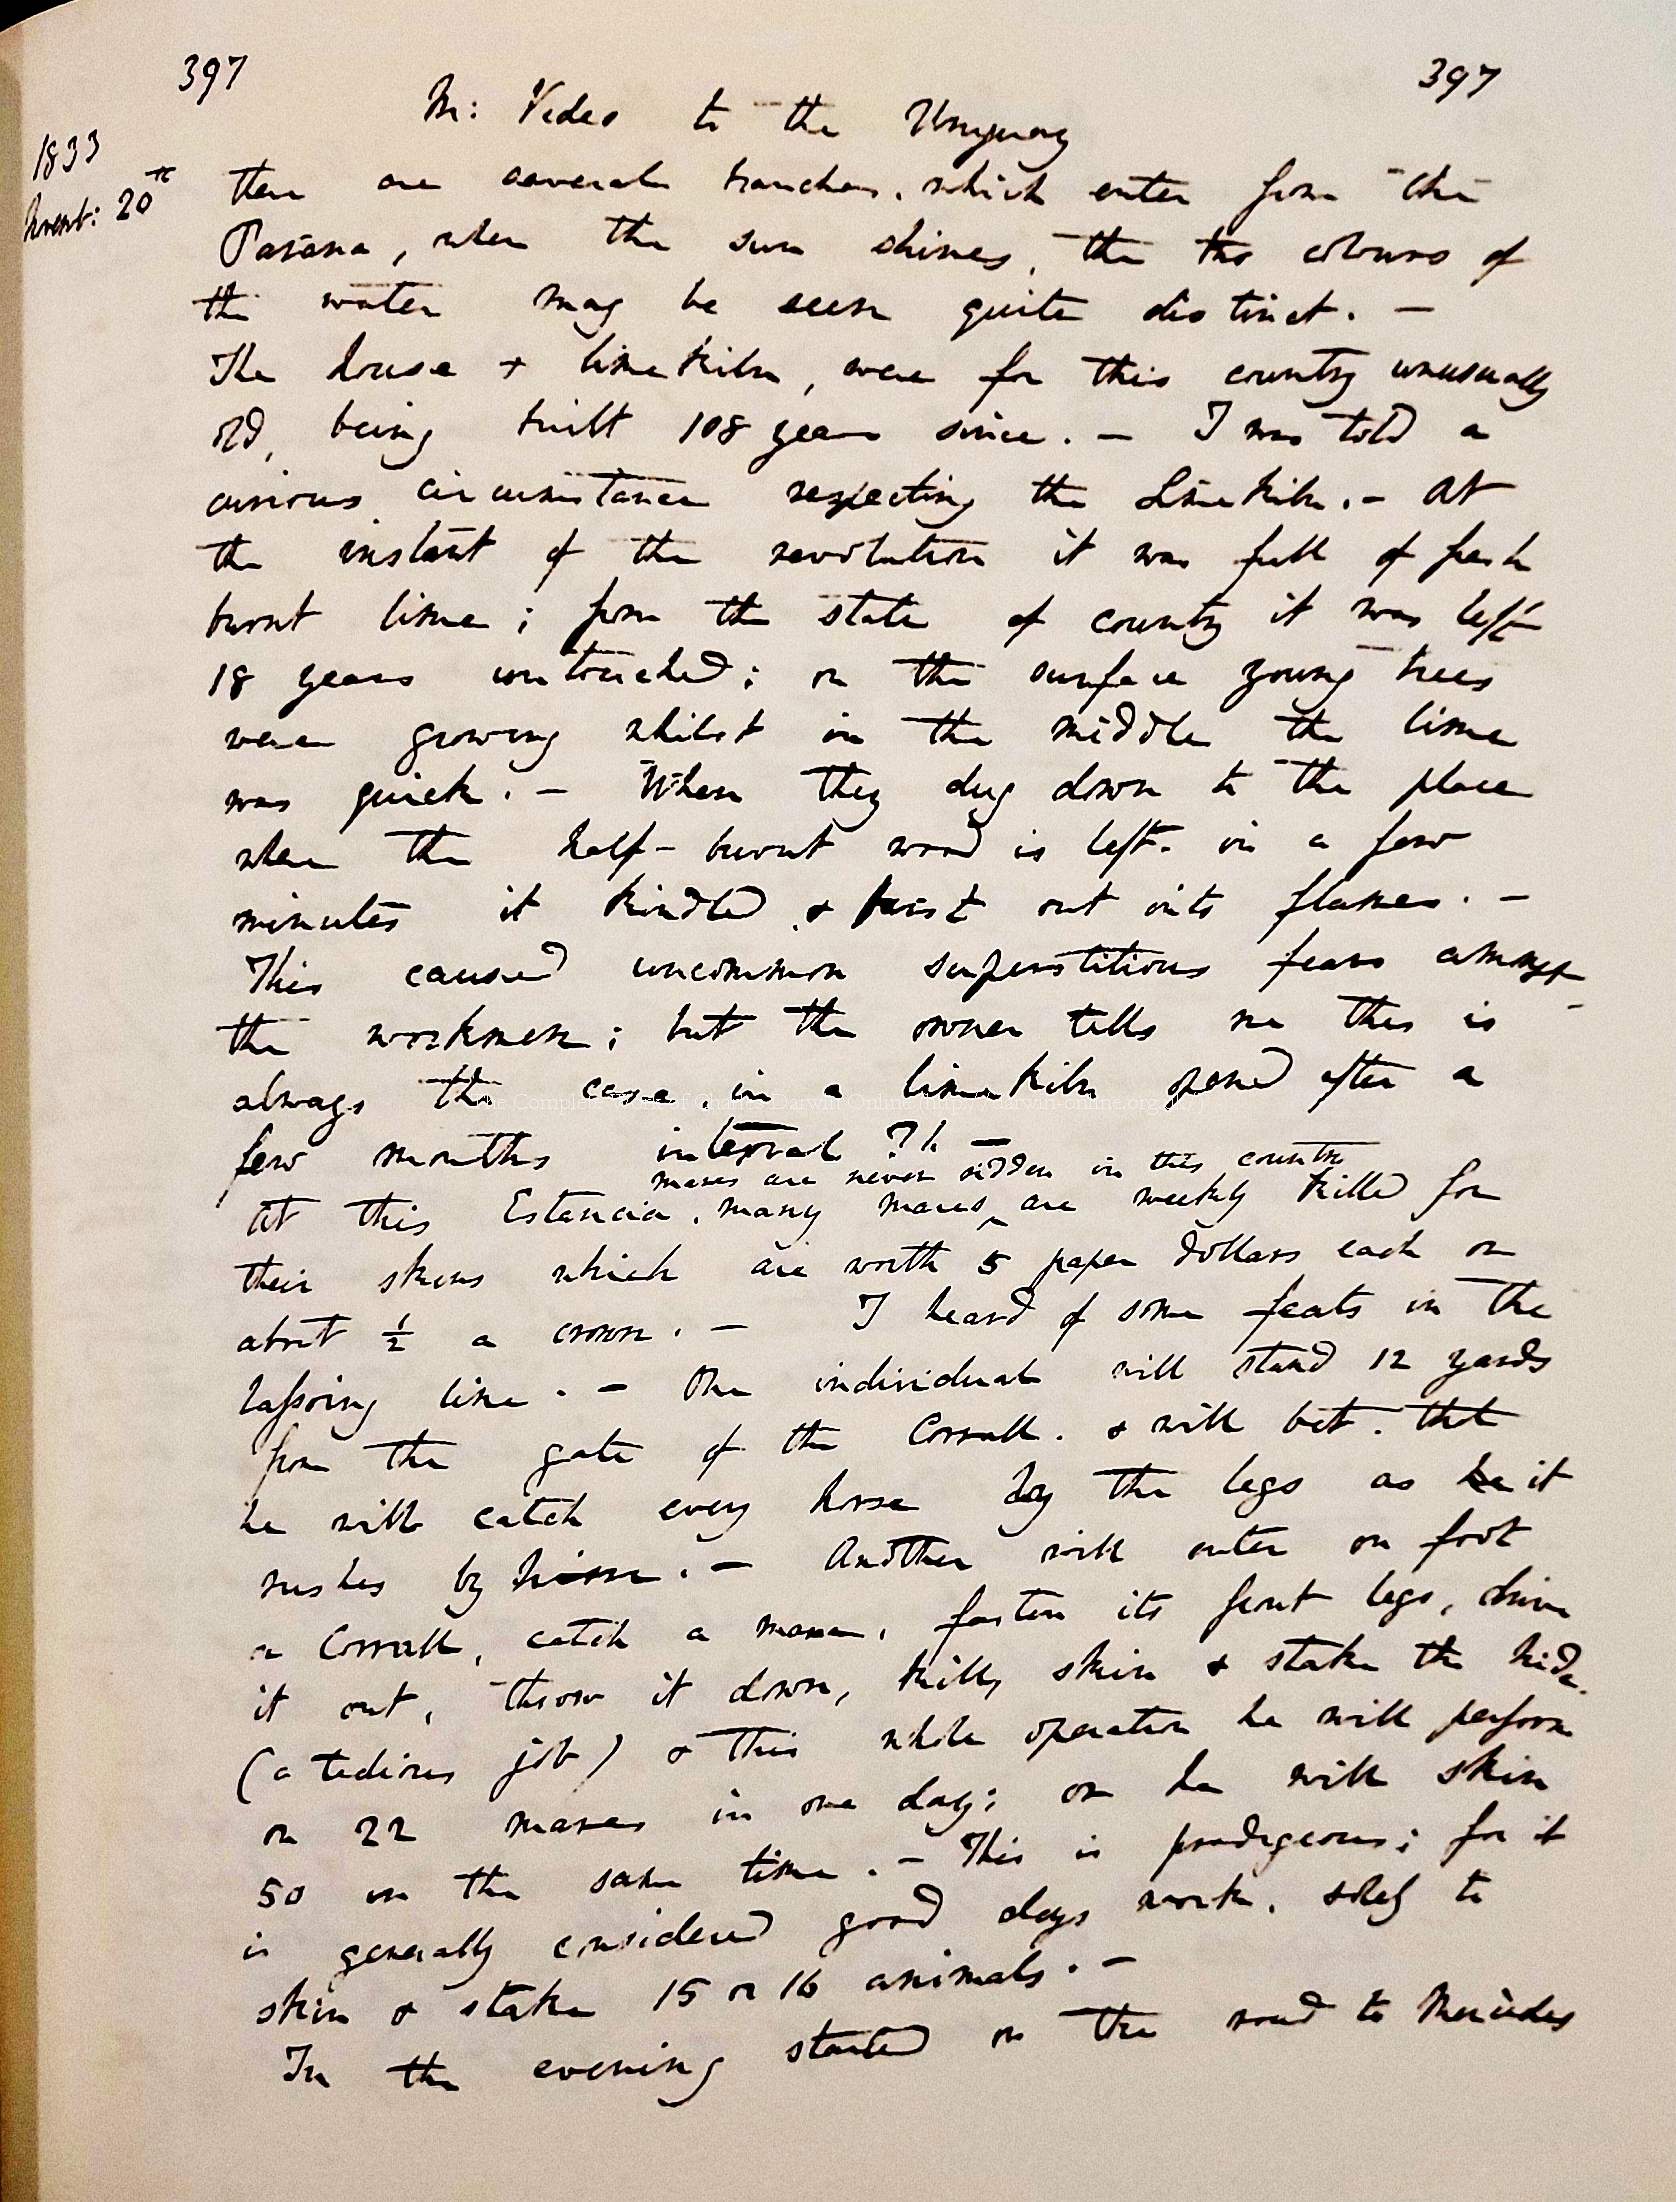 397 397
M: Video to the Uruguay
1833
Novemb: 20th
there are several branches, which enter from the
Parana, when the sun shines, the two colours of
the water may be seen quite distinct. —
The house & lime kiln, were for this country unusually
old, being built 108 years since. — I was told a
curious circumstance respecting the Lime kiln. — At
the instant of the revolution it was full of fresh
burnt lime; from the state of country it was left
18 years untouched; on the surface young trees
were growing whilst in the middle the lime
was quick. — When they dug down to the place
where the half-burnt wood is left. in a few
minutes it kindled & burst out into flames. —
This caused uncommon superstitious fears amongst
the workmen; but the owner tells me this is
always the case, in a lime kiln opened after a
few months interval ?! —
mares are never ridden in this country
At this Estancia, many mares ^ are weekly killed for
their skins which are worth 5 paper dollars each or
about ½ a crown. — I heard of some feats in the
lassoing line. — One individual will stand 12 yards
from the gate of the Corrall. & will bet. that
he will catch every horse by the legs as he it
rushes by him. — Another will enter on foot
a Corrall, catch a mare, fasten its front legs, drive
it out, throw it down, kill, skin & stake the hide.
(a tedious job) & this whole operation he will perform
on 22 mares in one day; or he will skin
50 in the same time. — This is prodigeous; for it
is generally considered good days work, solely to
skin & stake 15 or 16 animals. —
In the evening started on the road to Mercedes